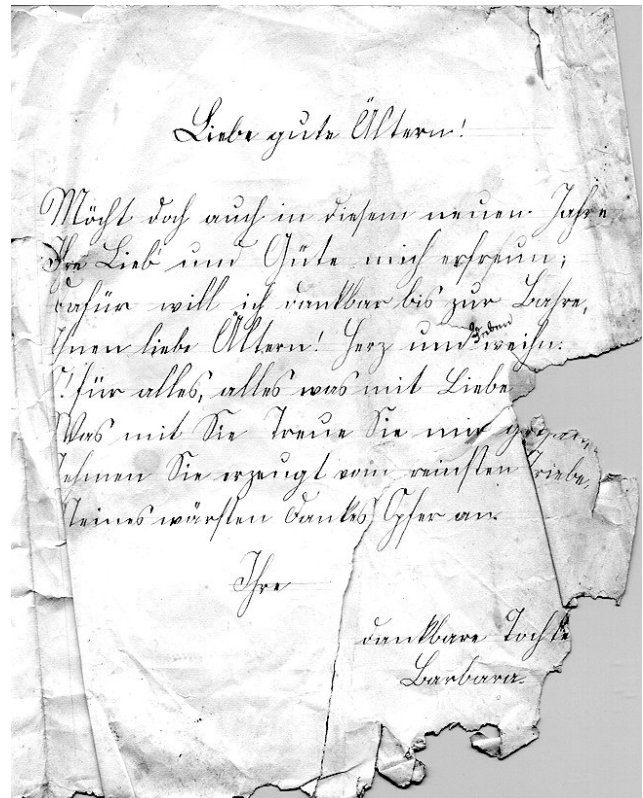 Liebe gute Ältern!
Möcht doch auch in diesem neuen Jahre
Ihre Lieb' und Güte mich erfreun;
Dafür will ich dankbar bis zur Bahre,
Ihnen liebe Ältern! Herz und Leben weihn.
O! für alles, alles was mit Liebe
Was mit Sie Treue Sie mir
Nehmen Sie erzeugt vom reinsten Triebe,
Meines wärsten Dankes Opfer an.
Ihre
dankbare Tochte
Barbara.